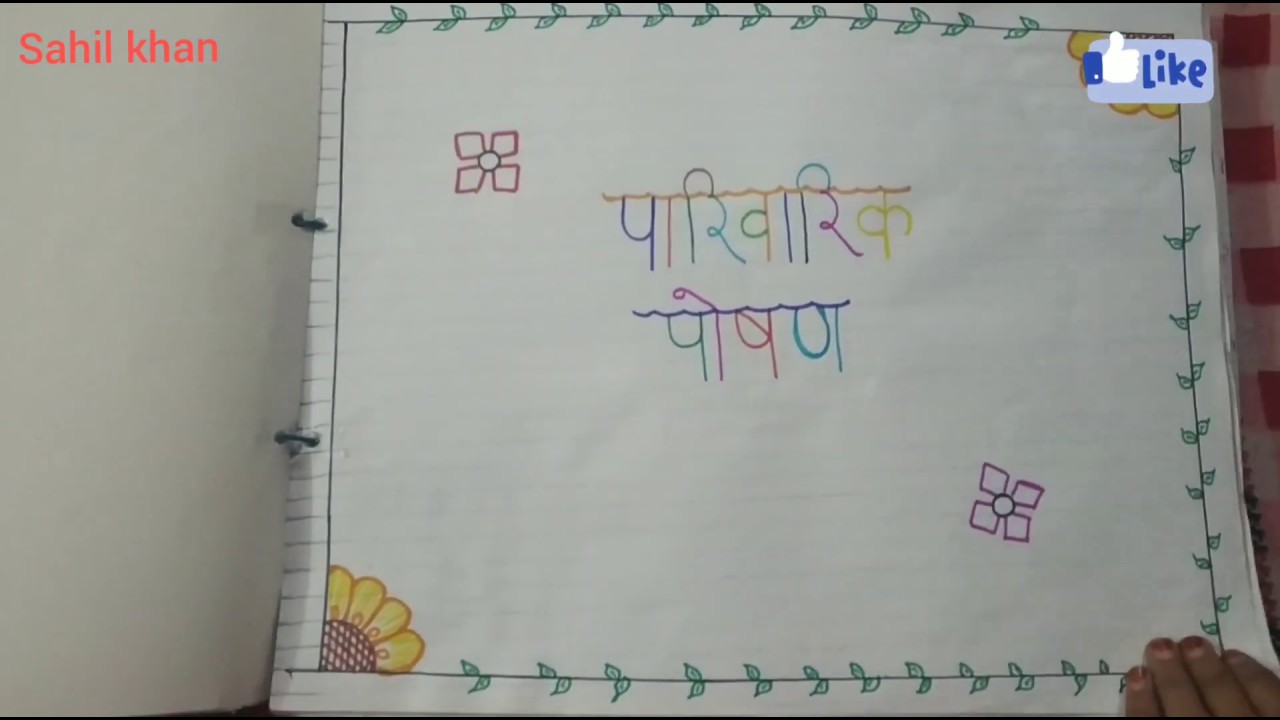 Sahil khan
Like
पारिवारिक
पोषण